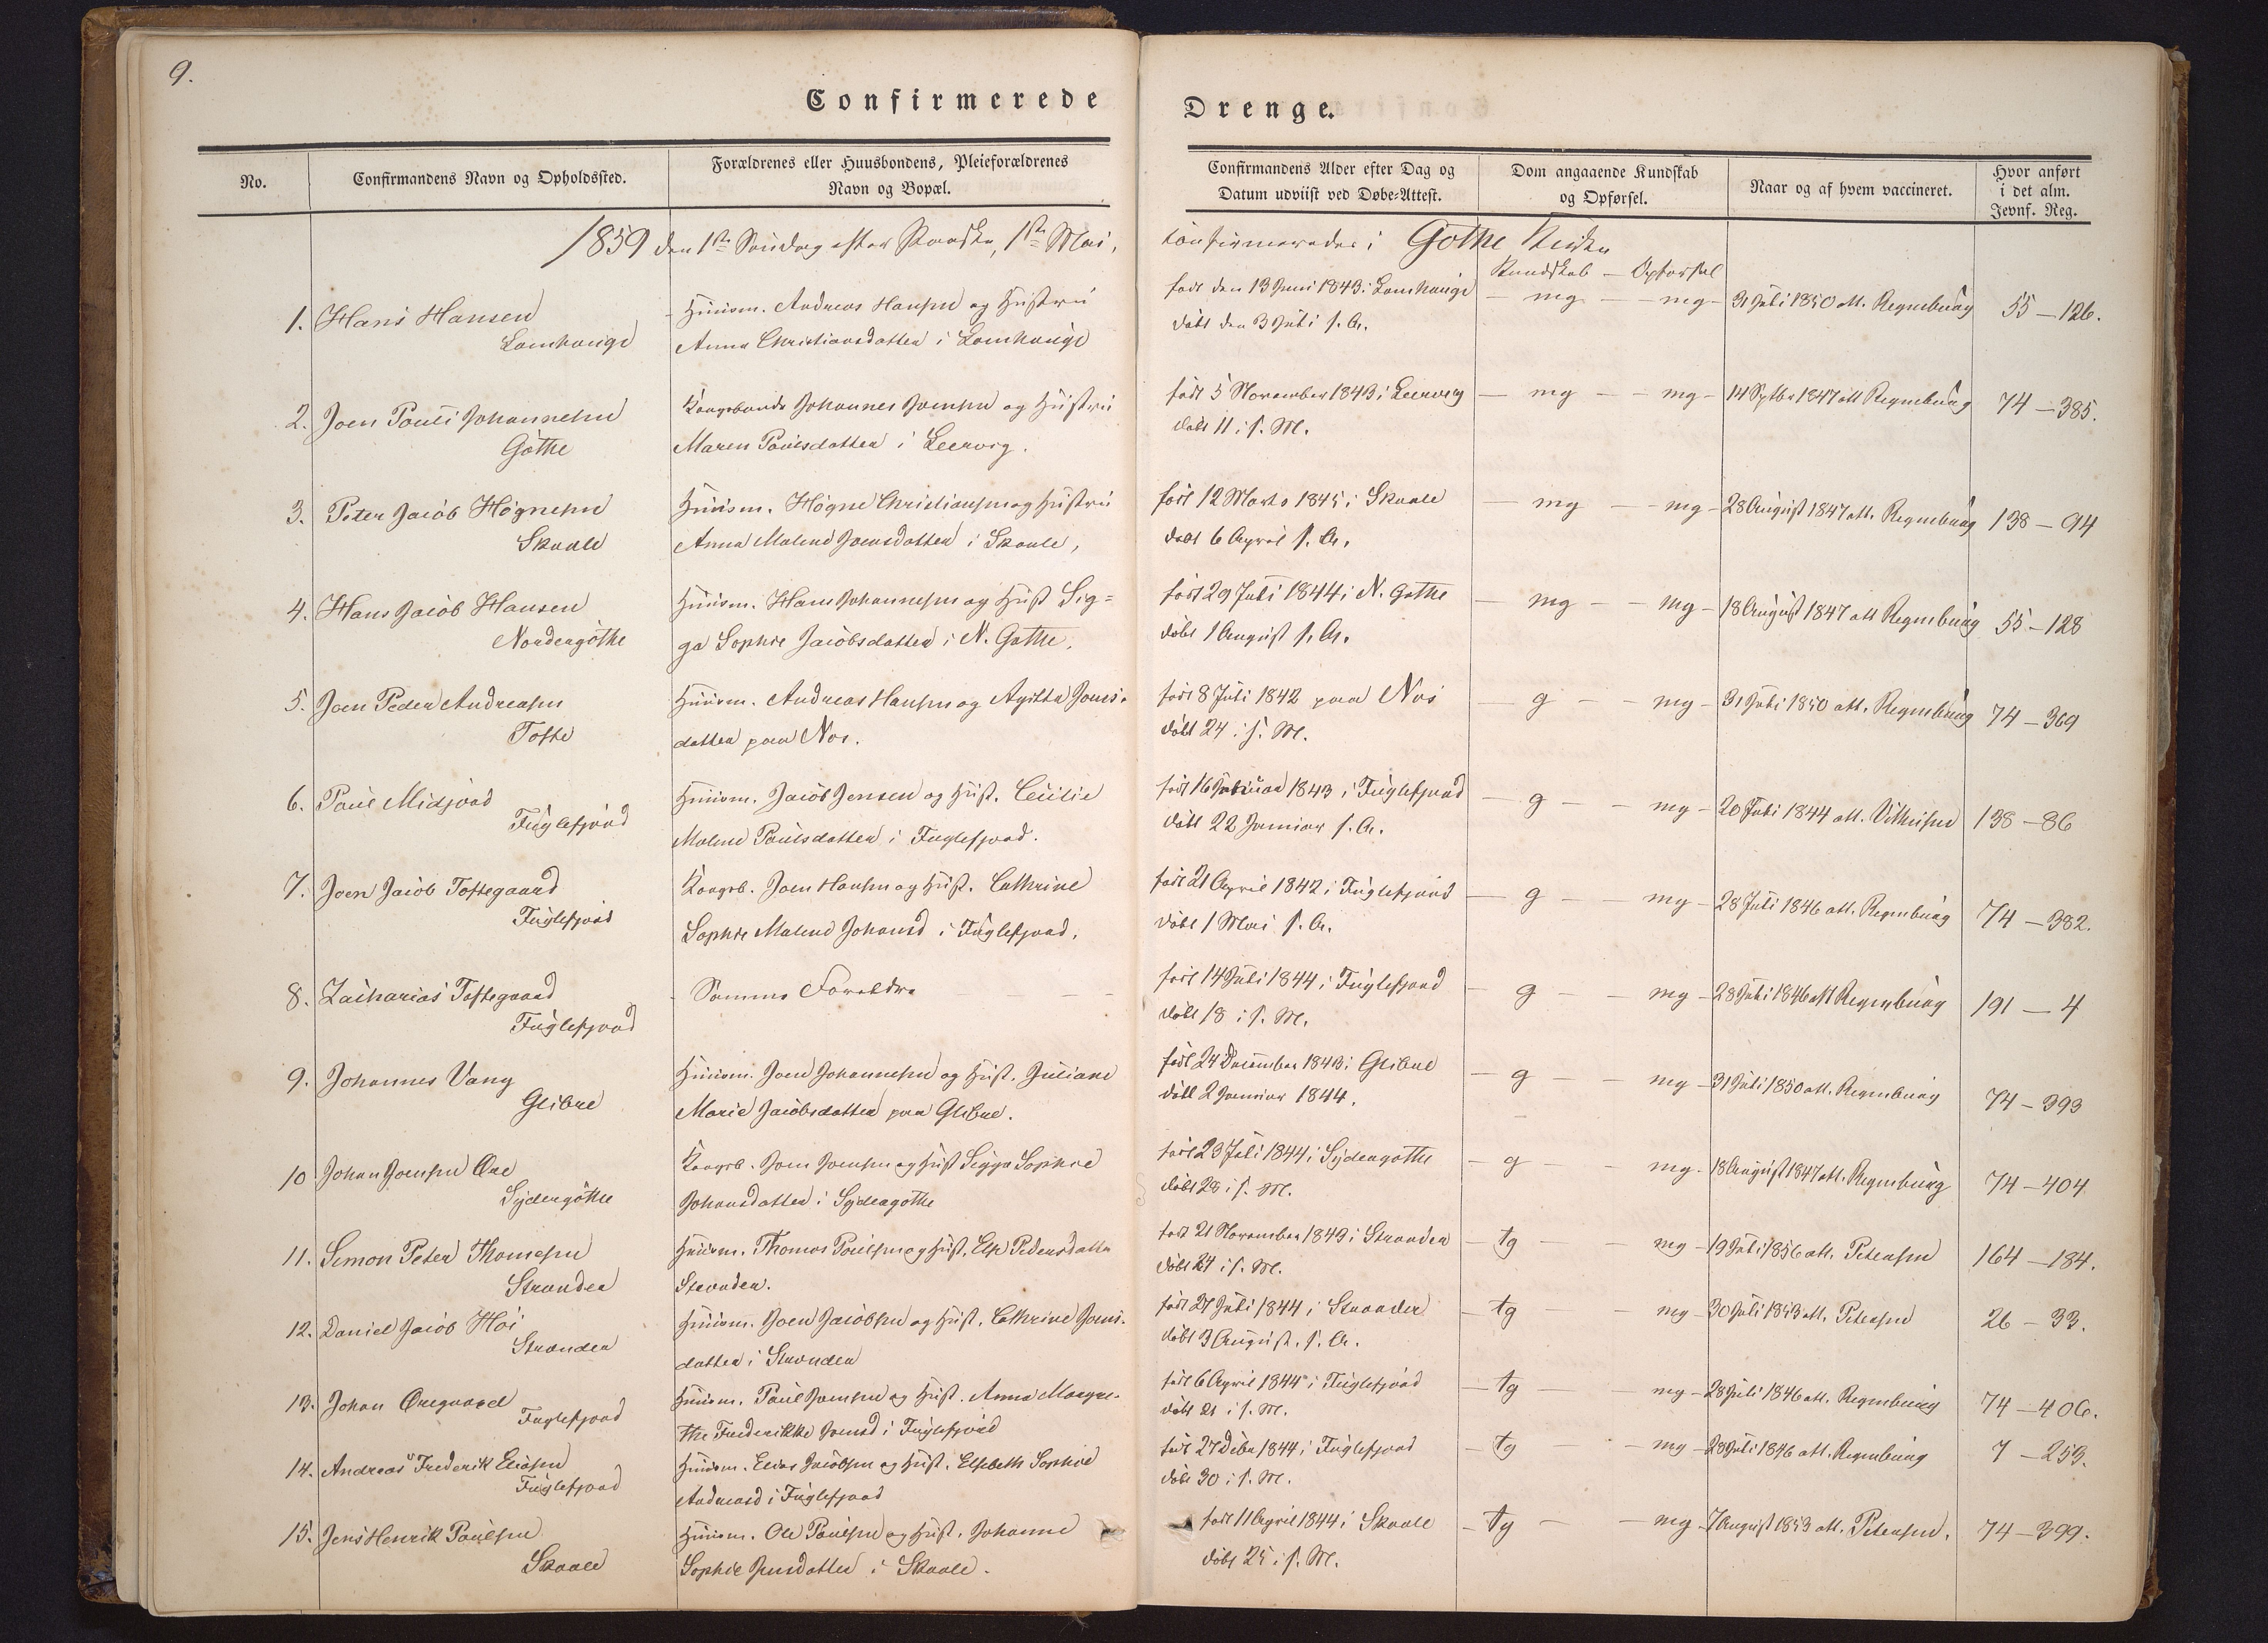 9.
Confirmerede
Drenge.
No.
Confirmandens Navn og Opholdssted.
Forældrenes eller Huusbondens, Pleieforældrenes
Navn og Bopæl.
Confirmandens Alder efter Dag og
Datum udviist ved Døbe-Attest.
Dom angaaende Kundskab
og Opførsel.
Naar og af hvem vaccineret.
Hvor anført
i det alm.
Jevnf. Reg.
1859 den 1ste Søndag efter Paaske, 1ste Mai, confirmerede i Gøthe Kirke
Kundskab — Opførsel
1. Hans Hansen
Lamhauge
Huusm. Andreas Hansen og Hustru
Anna Christiansdatter i Lamhauge
født den 13 Juni 1843 i Lamhauge
døbt den 3 Juli s. A.
— mg — — mg —
31 Juli 1850 att. Regenburg
55 — 126.
2. Joen Pauli Johannesen
Gøthe
Kongsbonde Johannes Joensen og Hustru
Maren Paulsdatter i Leervig.
født 5 November 1843 i Leervig
døbt 11 i s. M.
— mg — — mg —
14 Septbr 1847 att Regenburg
74 — 385.
3. Peter Jacob Høgnesen
Skaale
Huusm. Høgne Christiansen og Hustru
Anna Malene Joensdatter i Skaale,
født 12 Marts 1845 i Skaale
døbt 6 April s. A.
— mg — — mg —
28 August 1847 att. Regenburg
138 — 94
4. Hans Jacob Hansen
Nordergøthe
Huusm. Hans Johannesen og Hust Sig=
ga Sophie Jacobsdatter i N. Gøthe.
født 29 Juli 1844 i N. Gøthe
døbt 1 August s. A.
— mg — — mg —
18 August 1847 att Regenburg
55 — 128
5. Joen Peder Andreasen
Tofte
Huusm. Andreas Hansen og Agittha Jons-
datter paa Nes.
født 8 Juli 1842 paa Nes
døbt 24 i s. M.
— g — — mg —
31 Juli 1850 att. Regenburg
74 — 369
6. Paul Midjord
Fuglefjord
Huusm. Jacob Jensen og Hust. Cecilie
Malene Paulsdatter i Fuglefjord.
født 16 1843 i Fuglefjord
døbt 22 Januar s. A.
— g — — mg —
20 Juli 1844 att.
138 — 86
7. Joen Jacob Toftegaard
Fuglefjord
Kongsb. Joen Hansen og Hust. Cathrine
Sophie Malene Johansd i Fuglefjord.
født 21 April 1842 i Fuglefjord
døbt 1 Mai s. A.
— g — — mg —
28 Juli 1846 att. Regenburg
74 — 382.
8. Zacharias Toftegaard
Fuglefjord
Samme Forældre — — —
født 14 Juli 1844 i Fuglefjord
døbt 18 i s. M.
— g — — mg —
28 Juli 1846 att Regenburg
191 — 4
9. Johannes Vang
Glibre
Huusm. Joen Johannesen og Hust. Juliane
Marie Jacobsdatter paa Glibre.
født 24 December 1843 i Glibre
døbt 2 Januar 1844.
— g — — mg —
31 Juli 1850 att. Regenburg
74 — 393
10 Johan Joensen Øre
Sydergøthe
Kongsb. Joen Joensen og Hust Sigga Sophie
Johansdatter i Sydergøthe
født 23 Juli 1844 i Sydergøthe
døbt 28 i s. M.
— g — — mg.
18 August 1847 att. Regenburg
74 — 404
11. Simon Peter Thomesen
Strander
Huusm. Thomas Poulsen og Hust. Else Pedersdatter
Strender.
født 21 November 1843 i Strander
døbt 24 i s. M.
— tg — — mg —
19 Juli 1856 att. Petersen
164 — 184.
12. Daniel Jacob Høi
Strender
Huusm. Joen Jacobsen og Hust. Cathrine Joens-
datter i Strender
født 27 Juli 1844 i Strander
døbt 3 August. s. A.
— tg — — mg —
30 Juli 1853 att. Petersen
26 — 33.
13. Johan Øregaard
Fuglefjord
Huusm. Paul Joensen og Hust. Anna Margre-
the Frederikke Joensd i Fuglefjord
født 6 April 1844 i Fuglefjord
døbt 21 i s. M.
— tg — — mg —
28 Juli 1846 att. Regenburg
74 — 406.
14. Andreas Frederik Eliasen
Fuglefjord
Huusm. Elias Jacobsen og Hust. Elsebeth Sophie
Andreasd i Fuglefjord
født 27 Debr 1844 i Fuglefjord
døbt 30 i s. M.
— tg — — mg —
28 Juli 1846 att. Regenburg
7 — 253.
15. Jens Henrik Poulsen
Skaale
Huusm. Ole Poulsen og Hust. Johanne
Sophie Jensdatter i Skaale.
født 11 April 1844 i Skaale
døbt 25 i s. M.
— tg — — mg —
7 August 1853 att. Petersen.
74 — 399.